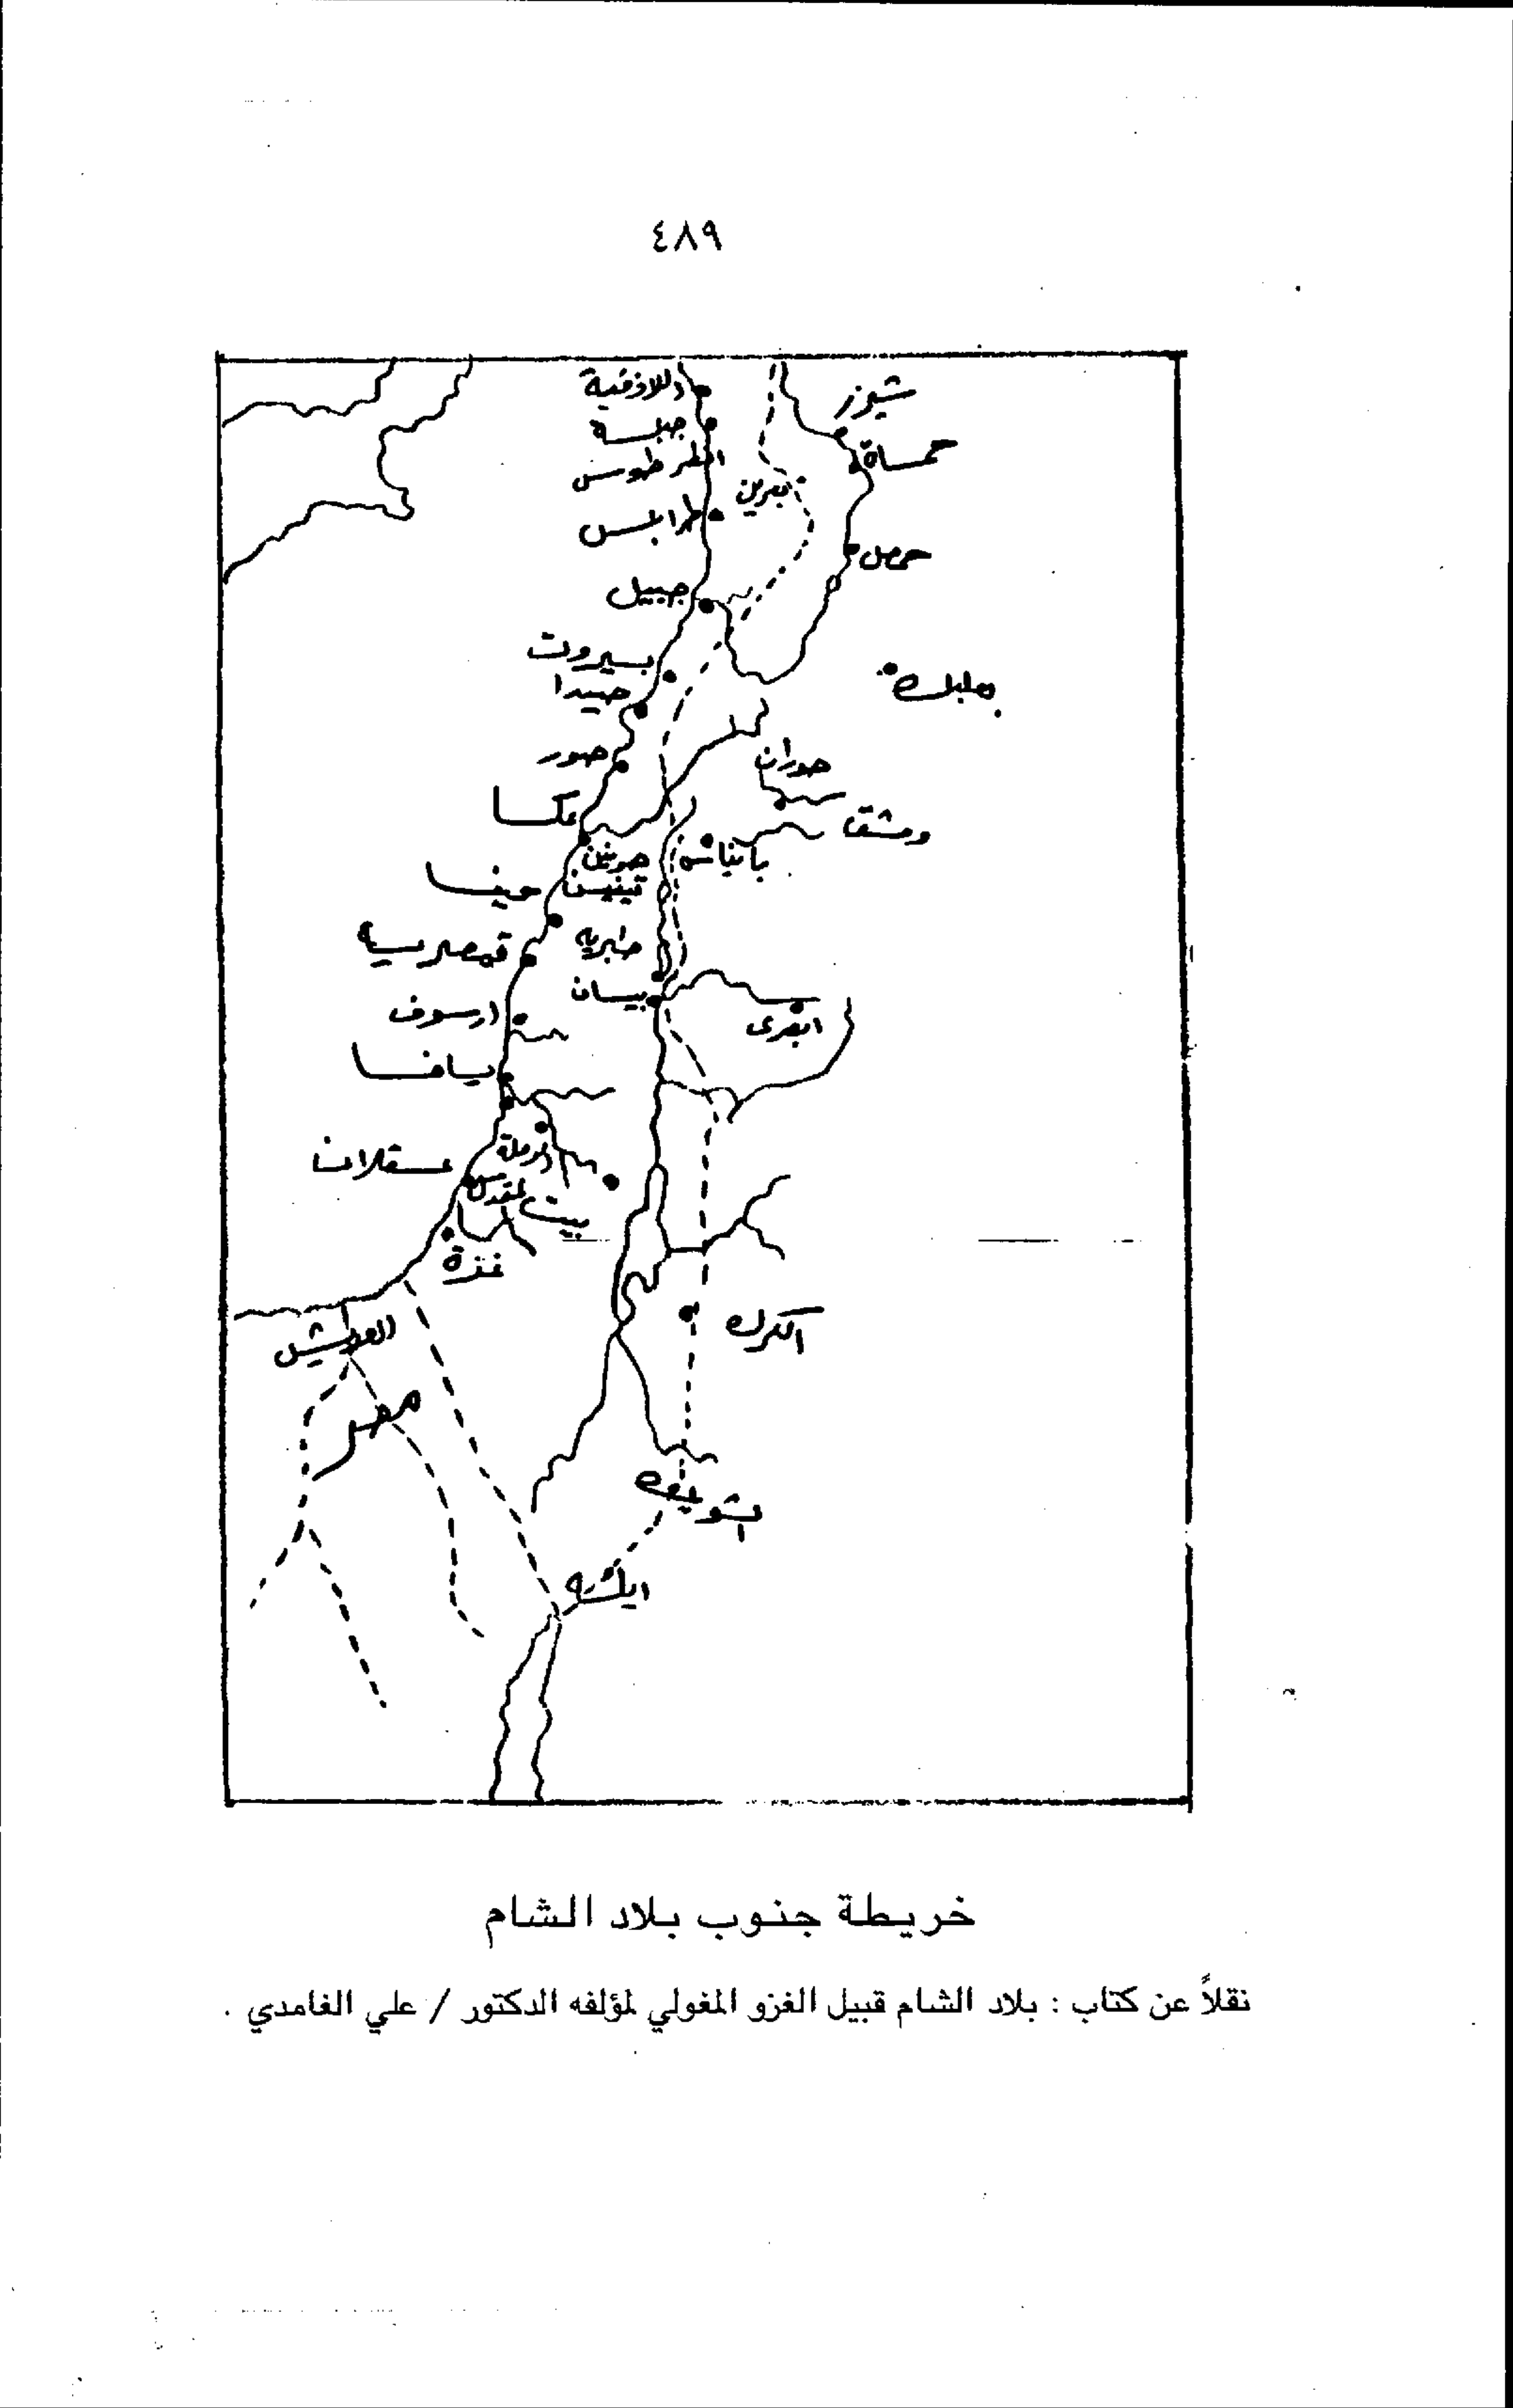 ٤٨٩
اللاذقية
شيزر
جبلة
حماة
انطرطوس
طرابلس
حمص
جبيل
بيروت
صيدا
بعلبك
صور
حوران
عكا
دمشق
بانياس
تبنين
حيفا
طبريه
قيصريه
بيسان
ارسوف
يافا
الرملة
عسقلان
بيت المقدس
غزة
الكرك
العريش
مصر
الشوبك
ايله
خريطة جنوب بلاد الشام
نقلاً عن كتاب : بلاد الشام قبيل الغزو المغولي لمؤلفه الدكتور / علي الغامدي .